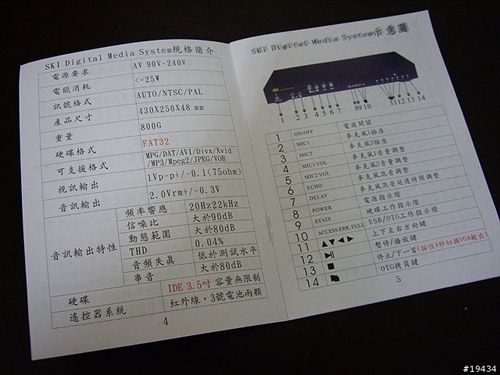 SKI Digital Media System規格簡介
電源要求 AV 90V-240V
電能消耗 <=25W
訊號格式 AUTO/NTSC/PAL
產品尺寸 430X250X48 mm
重量 800G
硬碟格式 FAT32
可支援格式 MPG/DAT/AVI/Divx/Xvid
/MP3/Mpeg2/JPEG/VOB
視訊輸出 1Vp-p+/-0.1(75ohm)
音訊輸出 2.0Vrm+/-0.3V
音訊輸出特性
頻率響應 20Hz22kHz
信噪比 大於90dB
動態範圍 大於80dB
THD 0.04%
音頻失真 低於測試水平
串音 大於80dB
硬碟 IDE 3.5吋 容量無限制
遙控器系統 紅外線，3號電池兩顆
4
SKI Digital Media System示意圖
1 2 3 4 5 6 7 8 9 10 11 12 13 14
1 ON/OFF 電源開關
2 MIC1 麥克風1插座
3 MIC2 麥克風2插座
4 MIC1.VOL 麥克風1音量調整
5 MIC2.VOL 麥克風2音量調整
6 ECHO 麥克風混音延遲時間調整
7 DELAY
8 POWER 電源指示燈
9 STATE 硬碟工作指示燈
10 ACCESS ERR.FULL USB/OTG工作指示燈
11 ▲▼◀▶ 上下左右方向鍵
12 ▶‖ 暫停/播放鍵
13 ■ 停止/下一首(按住4秒切換VGA輸出)
14 OTG拷貝鍵
5
#19434